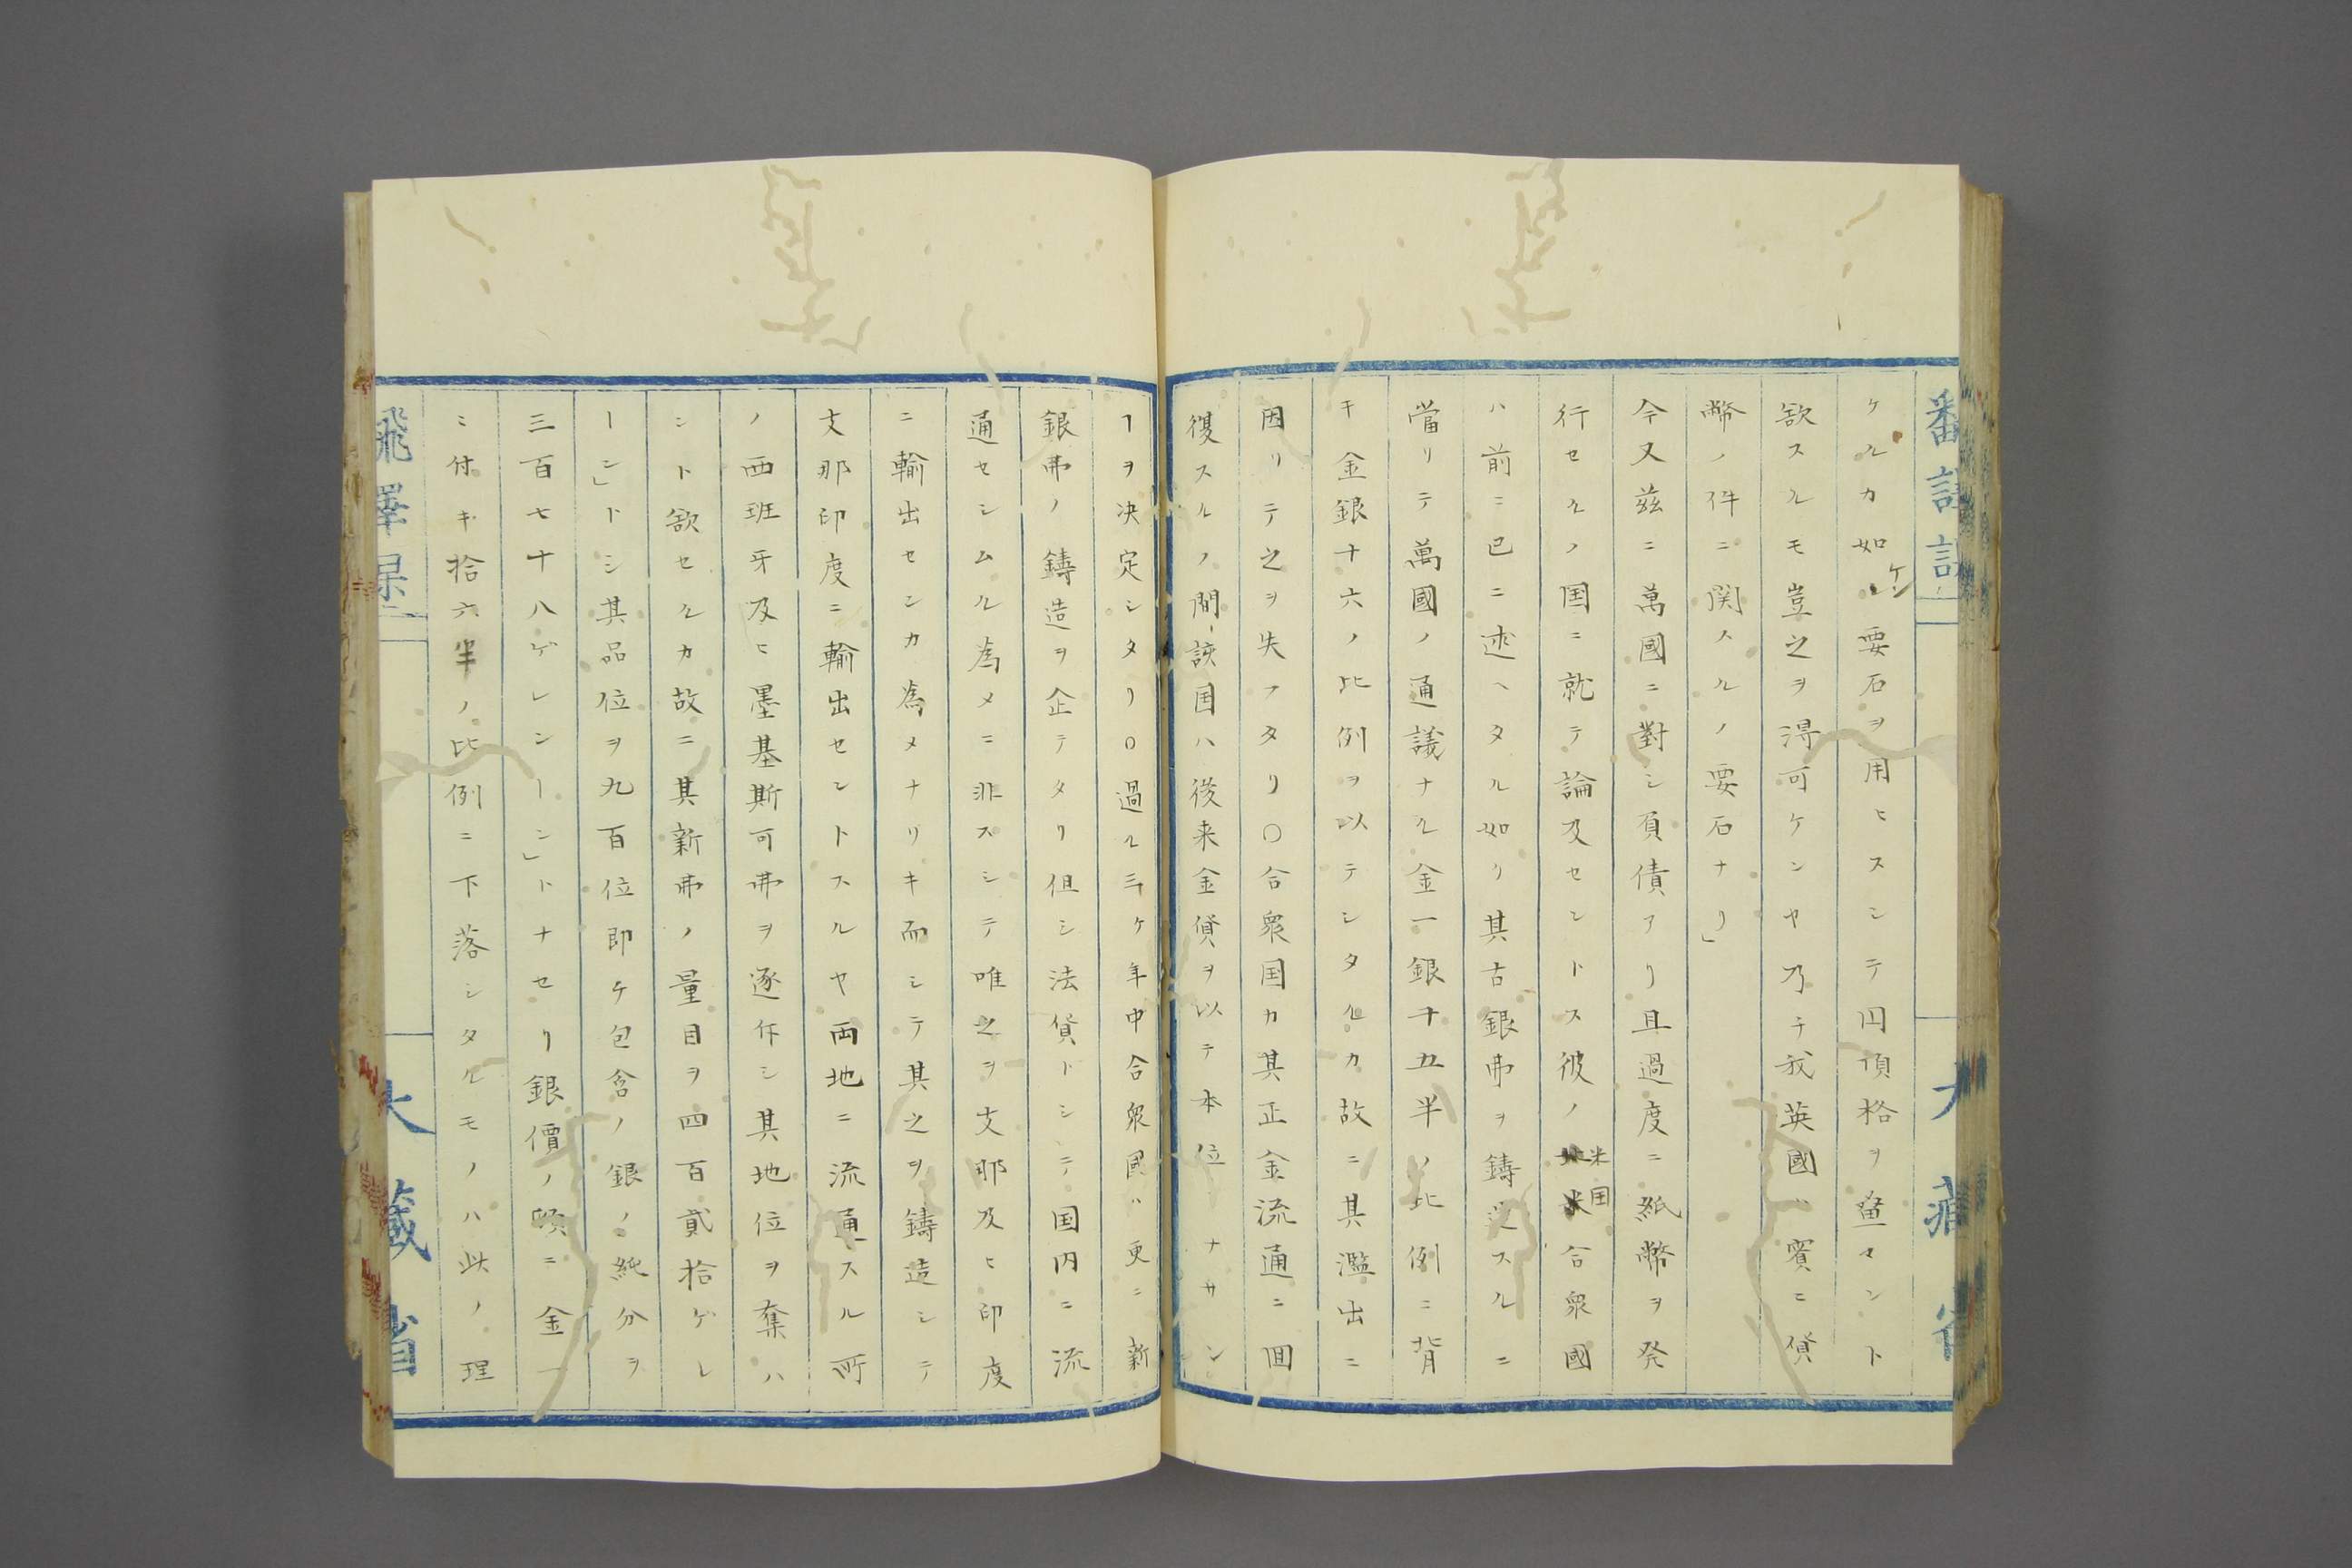 ケルカ如ケン要石ヲ用ヒスシテ円頂格ヲ畳マント
欲スルモ豈之ヲ得可ケンヤ乃チ我英國ハ實ニ貨
幣ノ件ニ関スルノ要石ナリ」
今又茲ニ萬國ニ對シ負債アリ且過度ニ紙幣ヲ発
行セルノ国ニ就テ論及セントス彼ノ米国合衆國
ハ前ニ已ニ述ヘタル如ク其古銀弗ヲ鋳造スルニ
當リテ萬國ノ通議ナル金一銀十五半ノ比例ニ背
キ金銀十六ノ比例ヲ以テシタルカ故ニ其濫出ニ
因リテ之ヲ失フタリ〇合衆国カ其正金流通ニ回
復スルノ間、該国ハ後来金貨ヲ以テ本位ナサン
ヿヲ决定シタリ〇過ル三ケ年中合衆國ハ更ニ新
銀弗ノ鋳造ヲ企テタリ但シ法貨トシテ国内ニ流
通セシムル為メニ非スシテ唯之ヲ支那及ヒ印度
ニ輸出センカ為メナリキ而シテ其之ヲ鋳造シテ
支那印度ニ輸出セントスルヤ両地ニ流通スル所
ノ西班牙及ヒ墨基斯可弗ヲ逐斥シ其地位ヲ奪ハ
ント欲セルカ故ニ其新弗ノ量目ヲ四百貳拾ゲレ
ーン」トシ其品位ヲ九百位即チ包含ノ銀ノ純分ヲ
三百七十八ゲレンーン」トナセリ銀價ノ順ニ金一
ニ付キ拾六半ノ比例ニ下落シタルモノハ此ノ理
大藏省